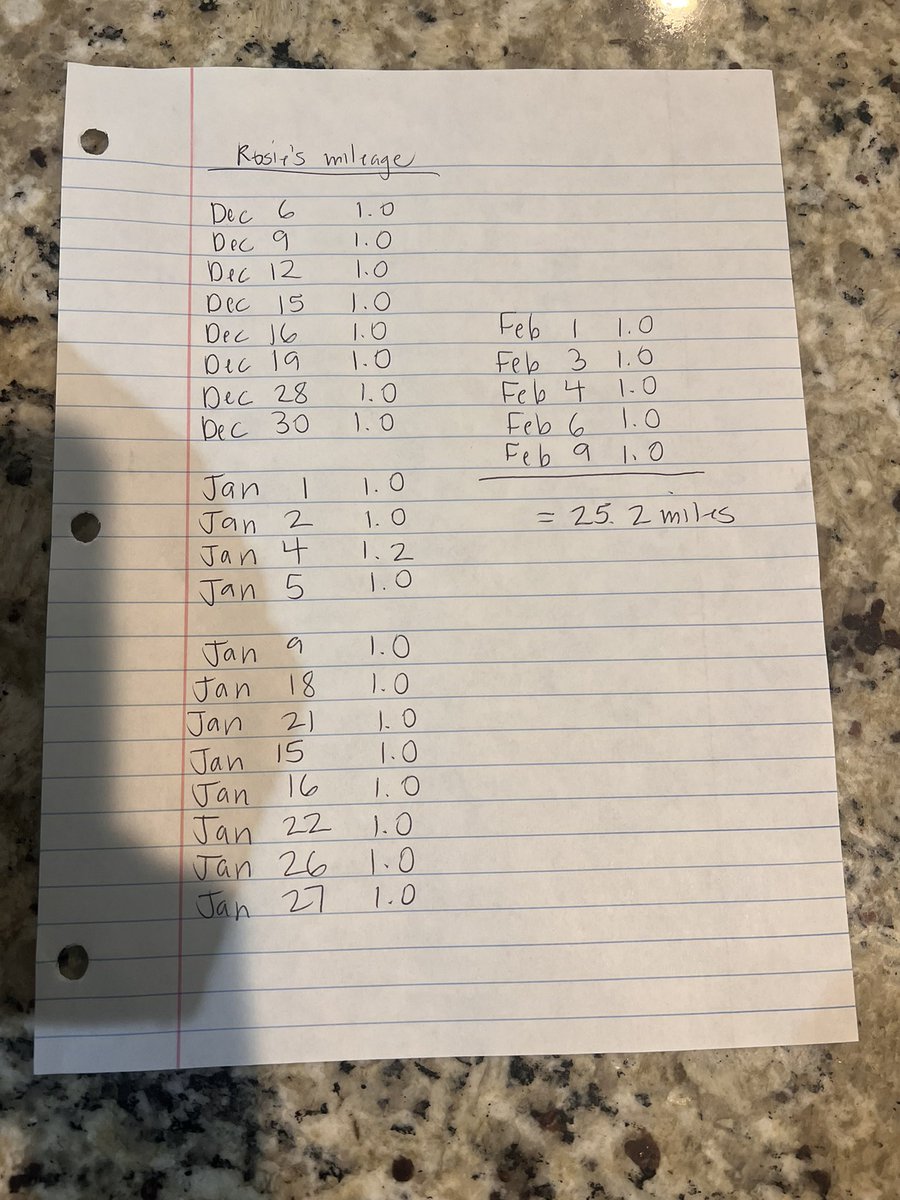 Rosie's mileage
Dec 6 1.0
Dec 9 1.0
Dec 12 1.0
Dec 15 1.0
Dec 16 1.0
Dec 19 1.0
Dec 28 1.0
Dec 30 1.0
Jan 1 1.0
Jan 2 1.0
Jan 4 1.2
Jan 5 1.0
Jan 9 1.0
Jan 18 1.0
Jan 21 1.0
Jan 15 1.0
Jan 16 1.0
Jan 22 1.0
Jan 26 1.0
Jan 27 1.0
Feb 1 1.0
Feb 3 1.0
Feb 4 1.0
Feb 6 1.0
Feb 9 1.0
= 25.2 miles